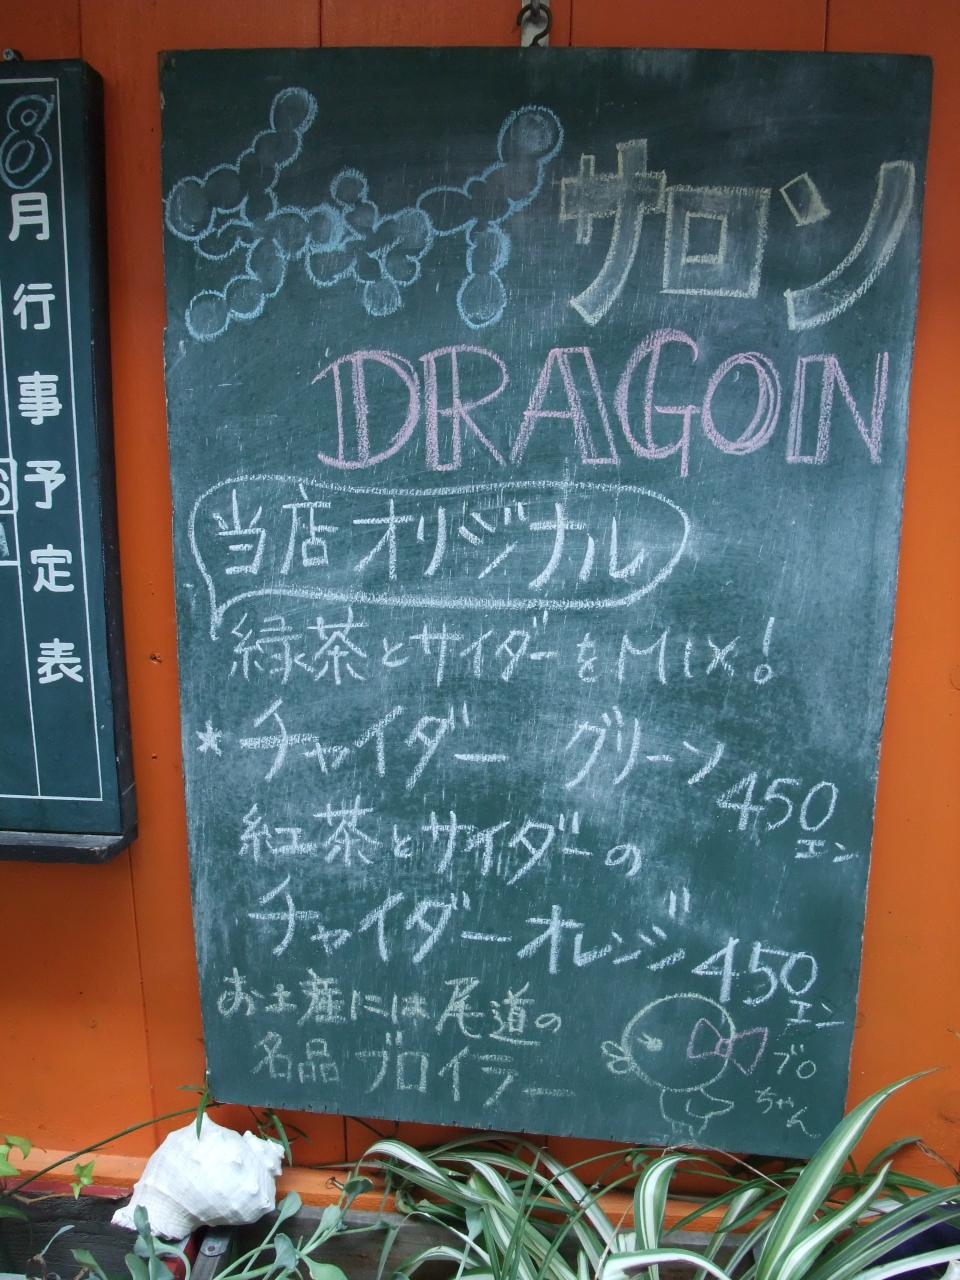 8月行事予定表
サロン
DRAGON
当店オリジナル
緑茶とサイダーをMIX!
★チャイダー グリーン 450エン
紅茶とサイダーの
チャイダーオレンジ 450エン
お土産には尾道の
名品ブロイラー
ブロちゃん